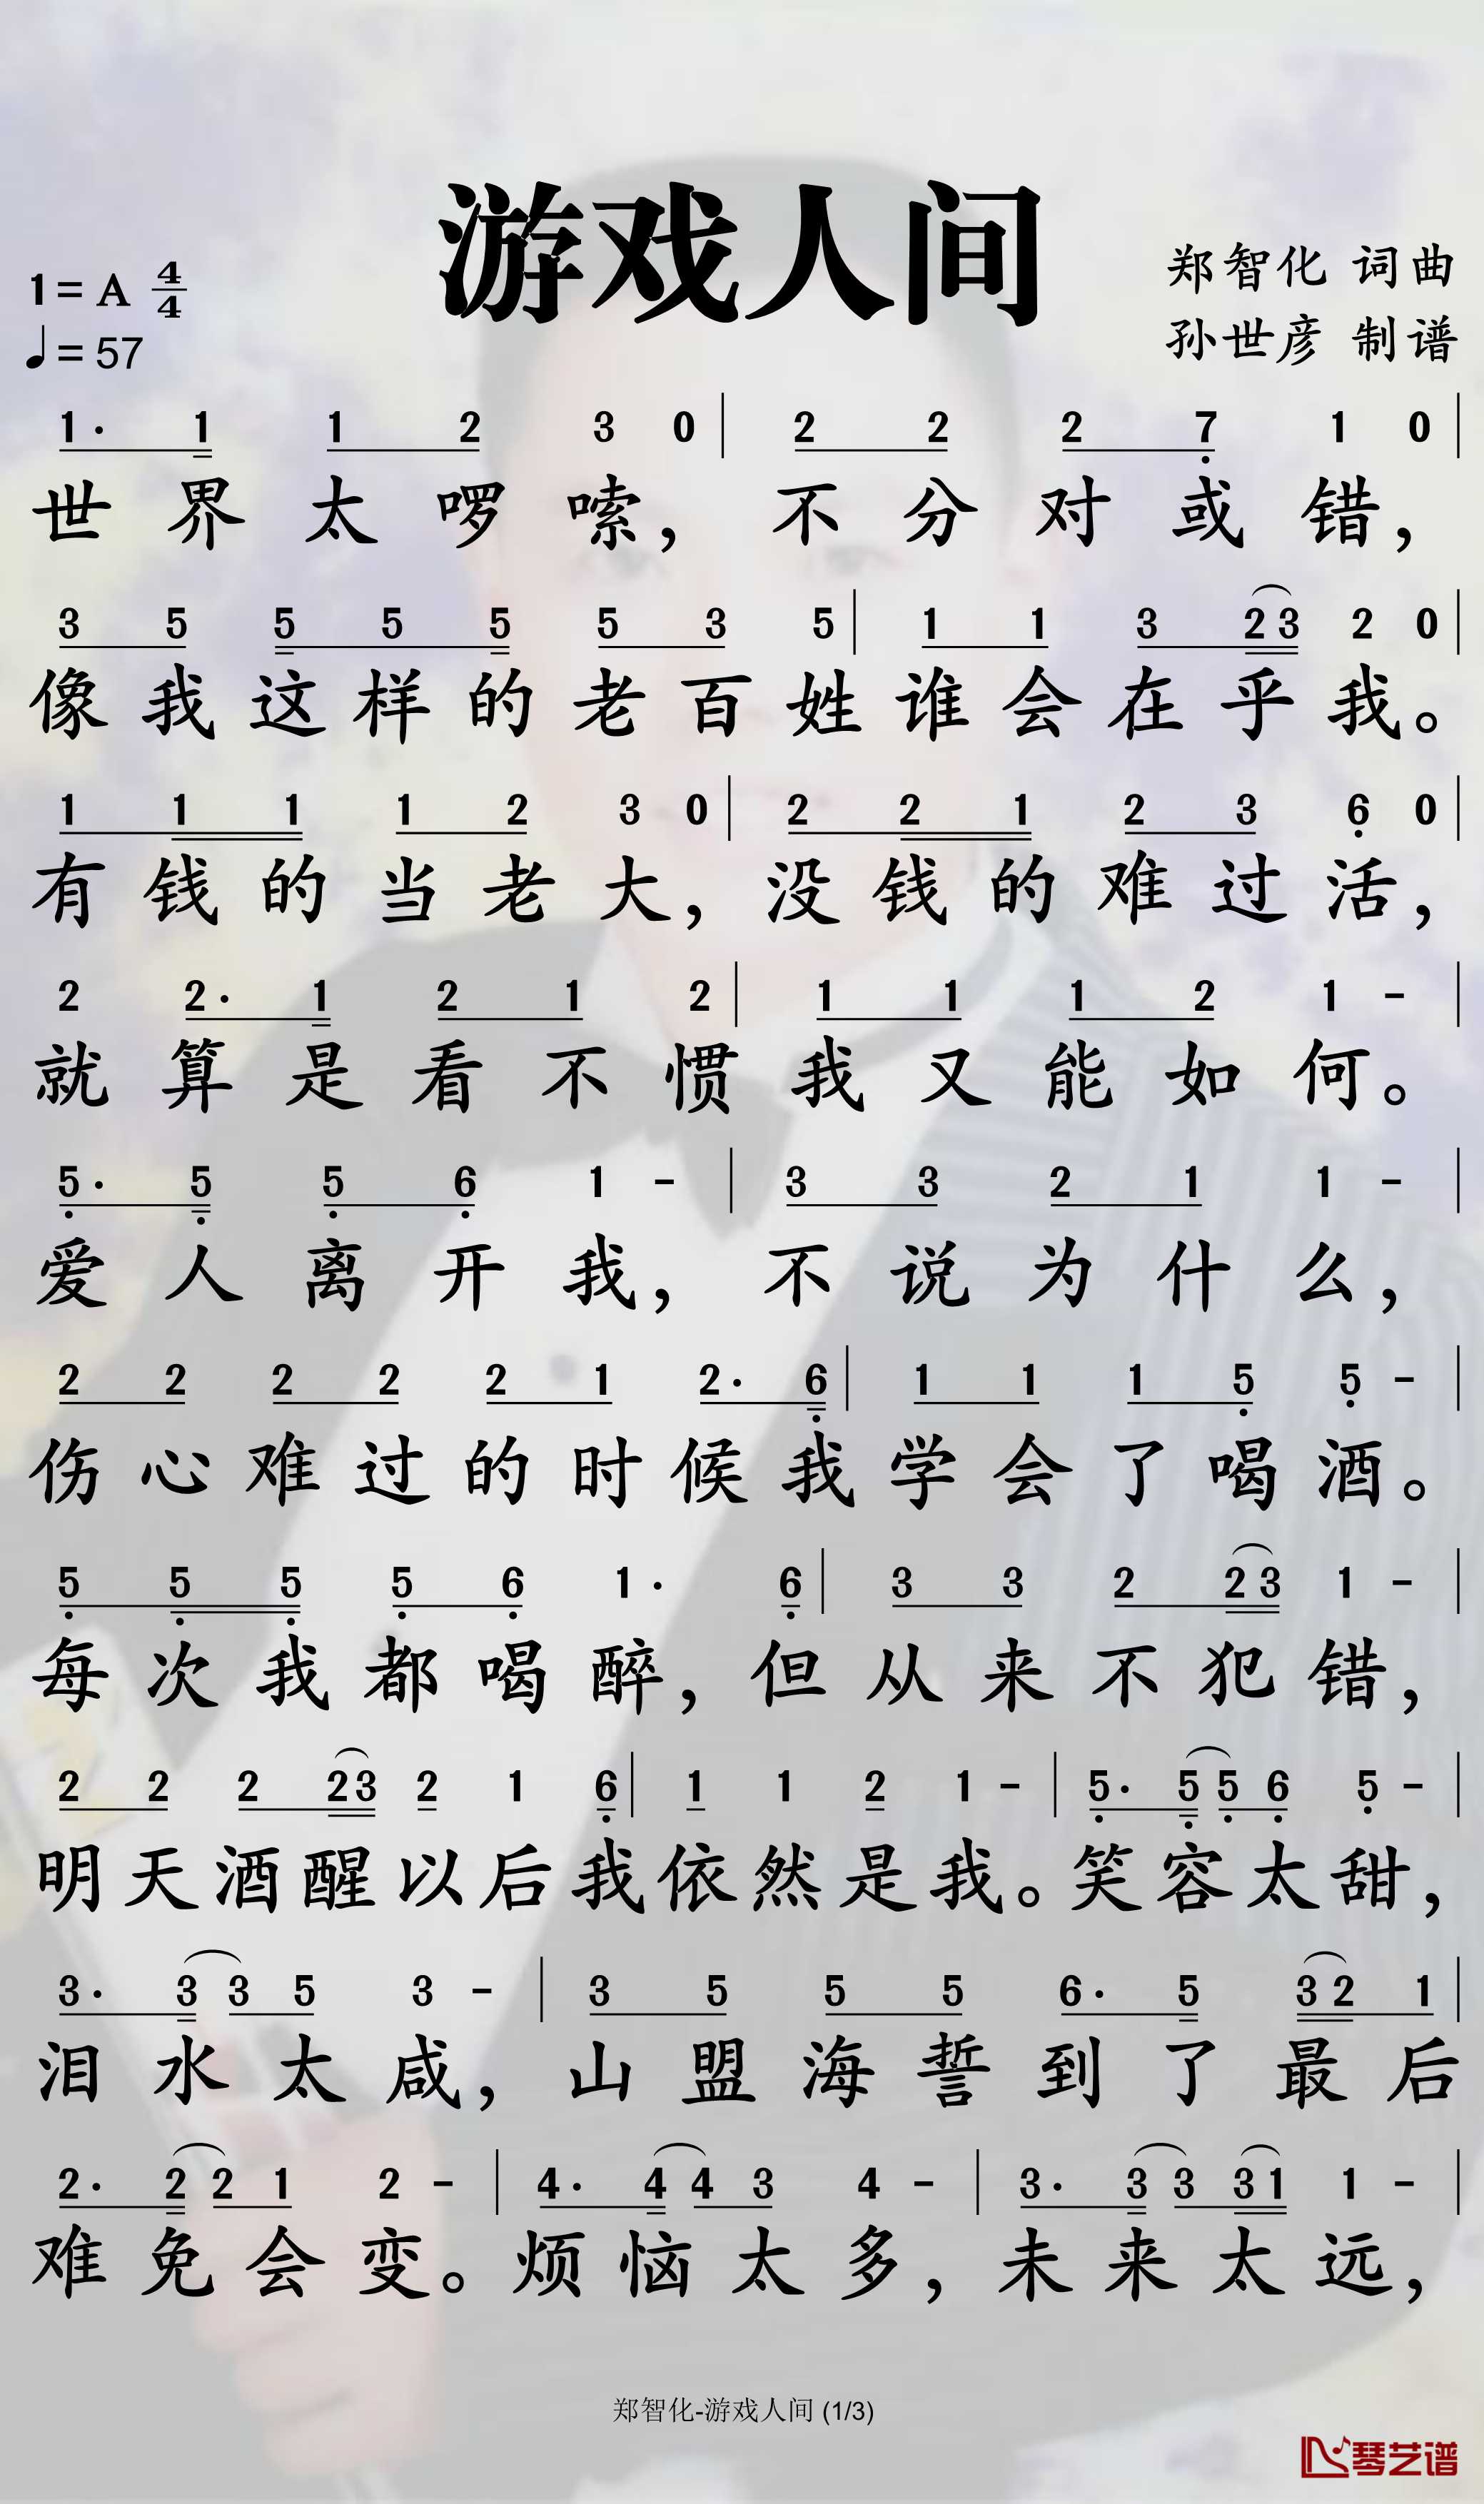 游戏人间
1=A 4/4
郑智化 词曲
♩=57
孙世彦 制谱
1· 1 1 2 3 0 | 2 2 2 7 1 0 |
世界太啰嗦，不分对或错，
3 5 5 5 5 5 3 5 | 1 1 3 2 3 2 0 |
像我这样的老百姓谁会在乎我。
1 1 1 1 2 3 0 | 2 2 1 2 3 6 0 |
有钱的当老大，没钱的难过活，
2 2· 1 2 1 2 | 1 1 1 2 1 - |
就算是看不惯我又能如何。
5· 5 5 6 1 - | 3 3 2 1 1 - |
爱人离开我，不说为什么，
2 2 2 2 2 1 2· 6 | 1 1 1 5 5 - |
伤心难过的时候我学会了喝酒。
5 5 5 5 6 1· 6 | 3 3 2 2 3 1 - |
每次我都喝醉，但从来不犯错，
2 2 2 2 3 2 1 6 | 1 1 2 1 - | 5· 5 5 6 5 - |
明天酒醒以后我依然是我。笑容太甜，
3· 3 3 5 3 - | 3 5 5 5 6· 5 3 2 1 |
泪水太咸，山盟海誓到了最后
2· 2 2 1 2 - | 4· 4 4 3 4 - | 3· 3 3 3 1 1 - |
难免会变。烦恼太多，未来太远，
郑智化-游戏人间 (1/3)
琴艺谱